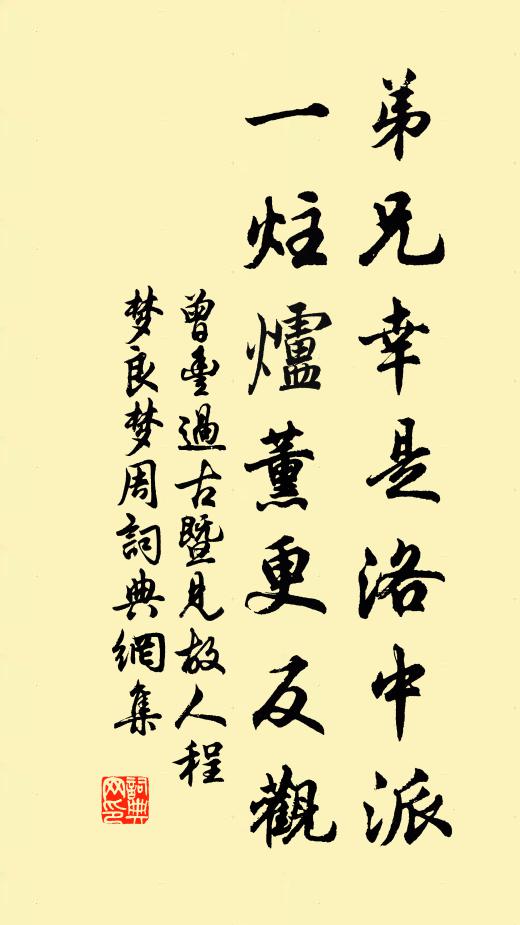 弟兄幸是洛中派
一炷爐薰更反觀
曾豐過古暨見故人程
梦良梦周詞典網集
詞典网印